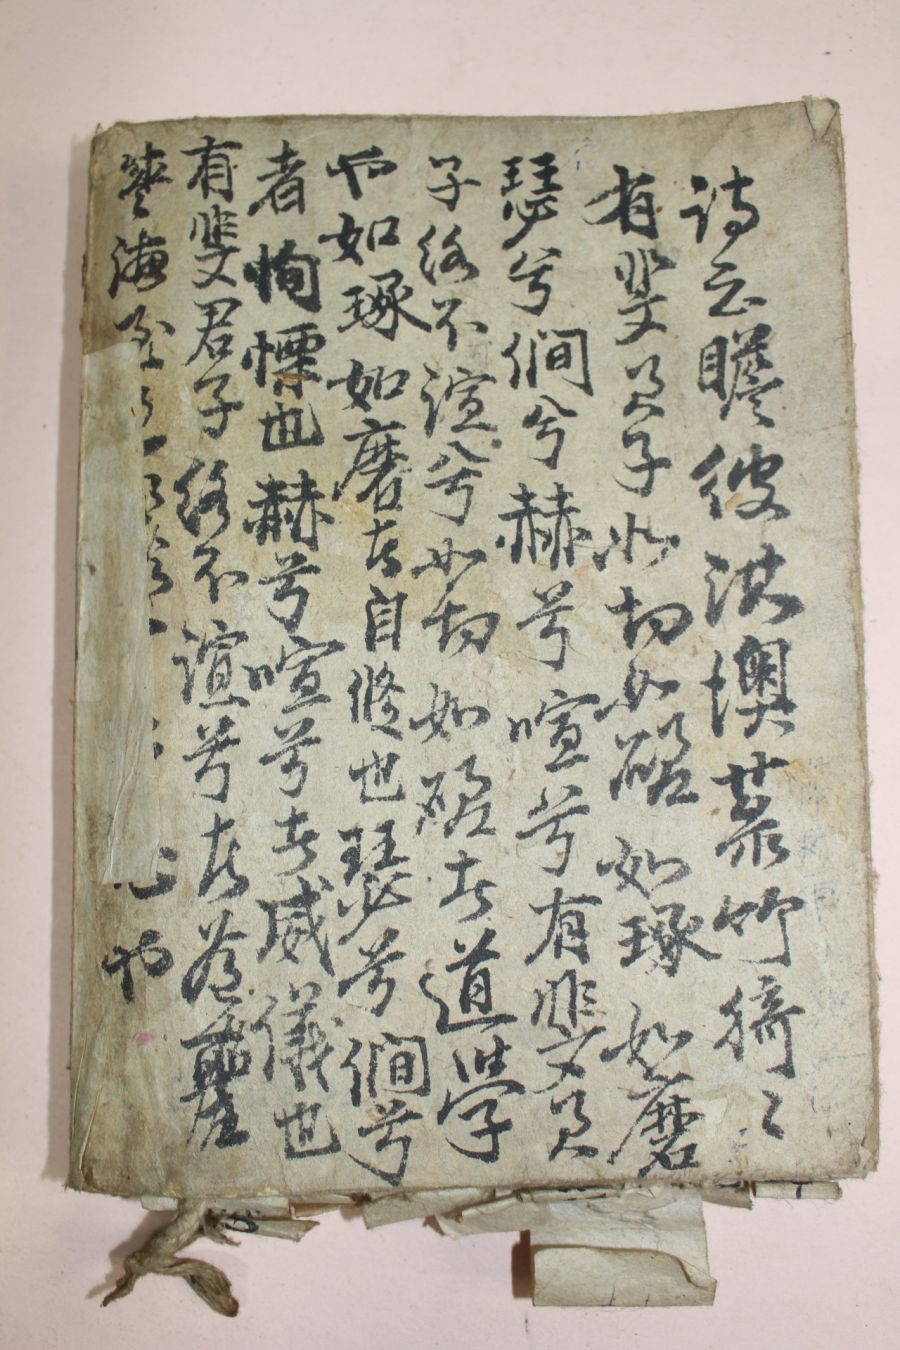 詩云瞻彼淇澳菉竹猗〻
有斐君子如切如磋如琢如磨
瑟兮僩兮赫兮喧兮有斐君
子終不諠兮如切如磋者道學
也如琢如磨者自修也瑟兮僩兮
者恂慄也赫兮喧兮者威儀也
有斐君子終不諠兮者道盛
德至 心也